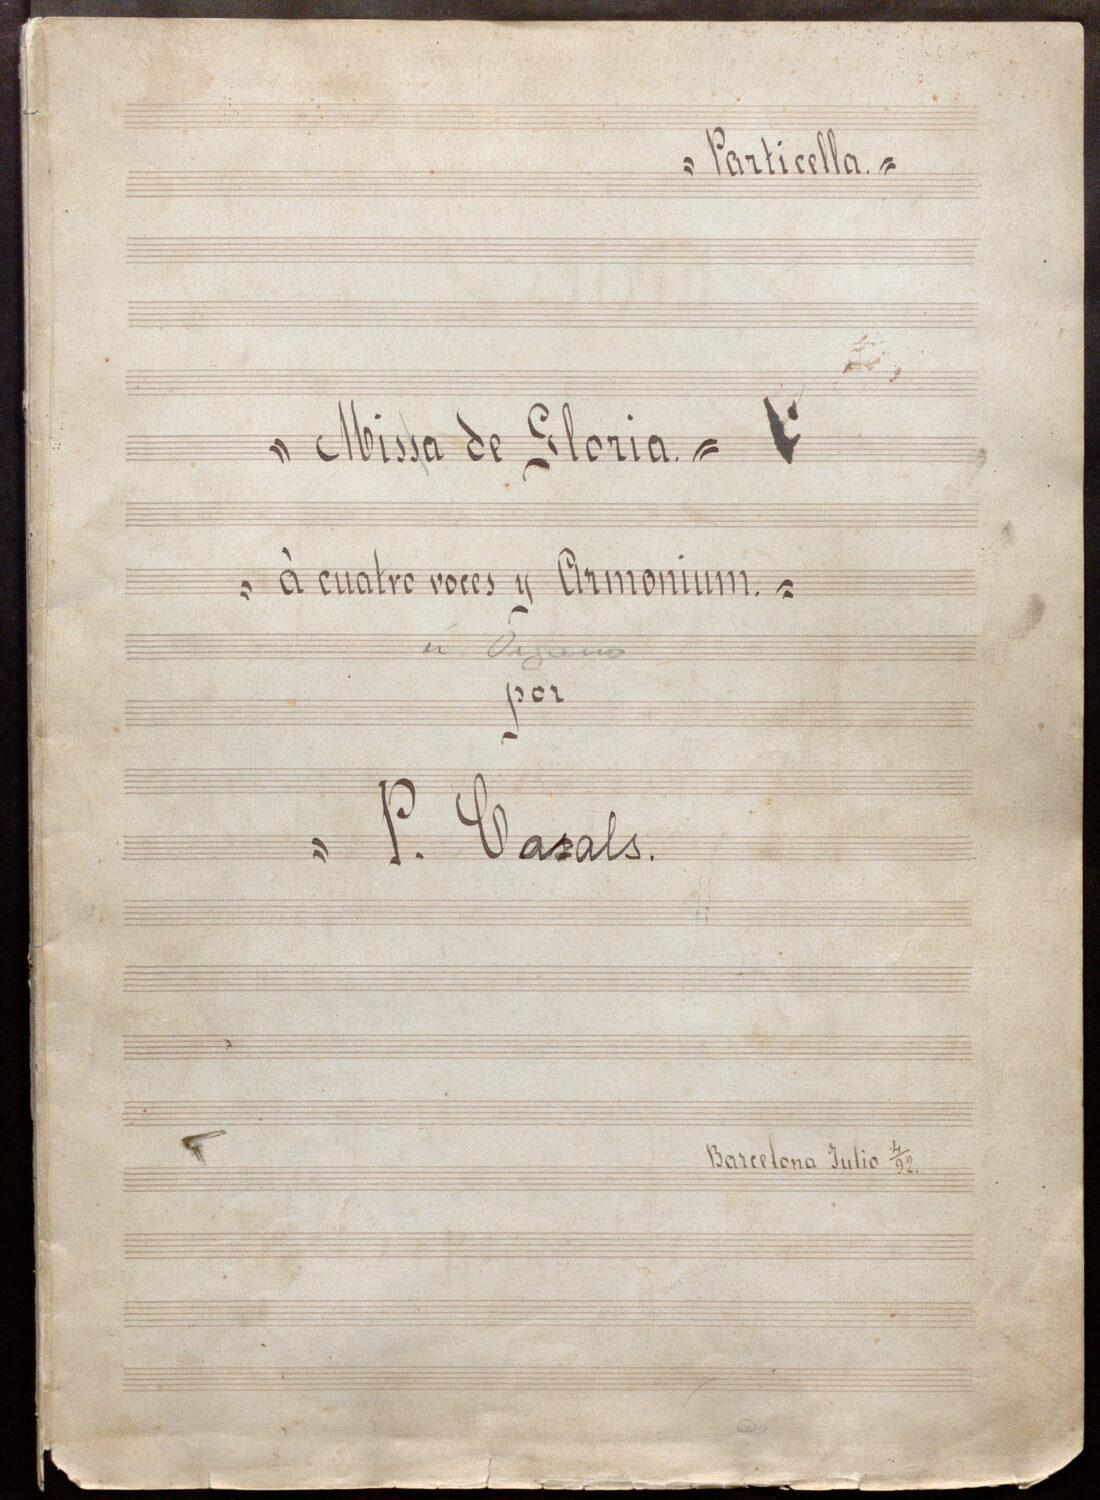 „ Particella. „
„ Missa de Gloria. „
„ à cuatro voces y Armonium. „
ú Organo
por
„ P. Casals.
Barcelona Julio 4/92.